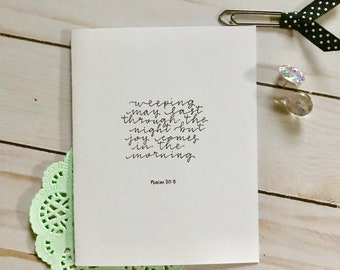 weeping
may last
through the
night but
joy comes
in the
morning
Psalm 30:5